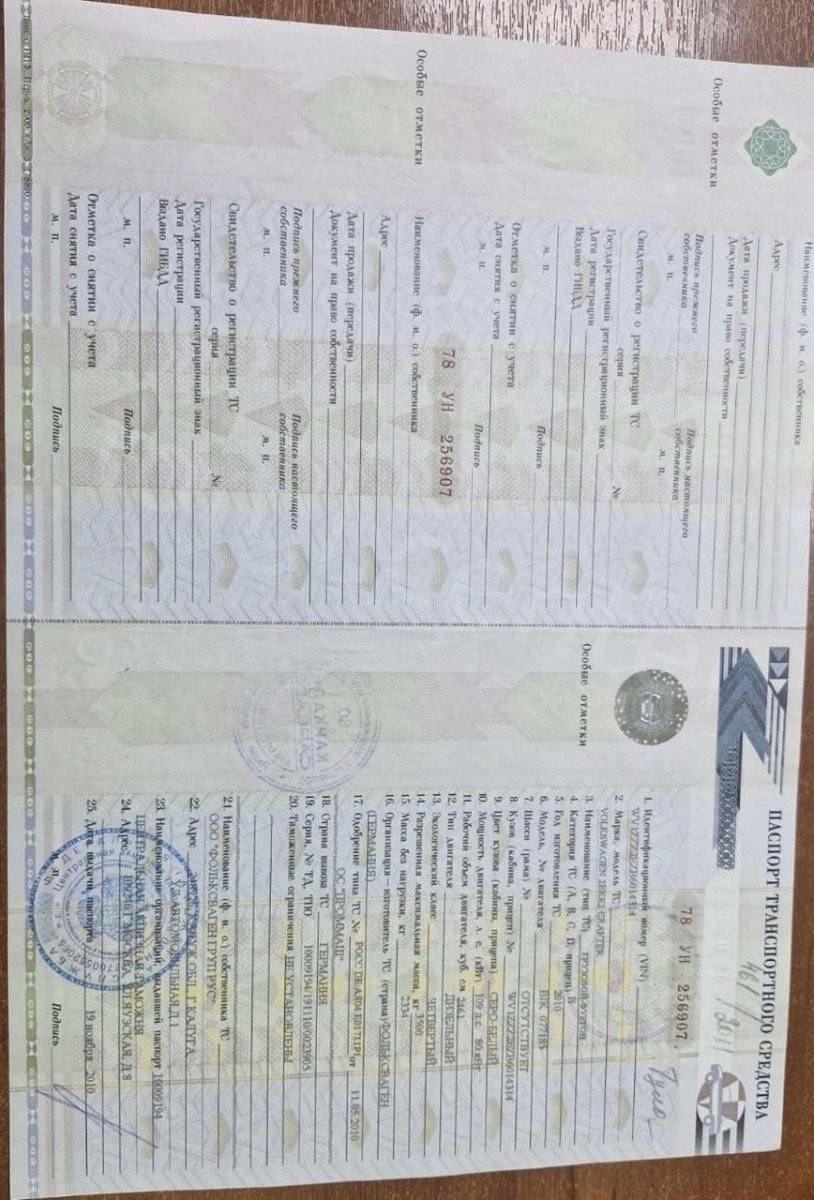 ПАСПОРТ ТРАНСПОРТНОГО СРЕДСТВА
78 УН 256907
1. Идентификационный номер (VIN)
WV1ZZZ2EZB6014314
2. Марка, модель ТС
VOLKSWAGEN 2EKE2 CRAFTER
3. Наименование (тип ТС) ГРУЗОВОЙ ФУРГОН
4. Категория ТС (А, В, С, D, прицеп) B
5. Год изготовления ТС 2010
6. Модель, № двигателя BJK 077185
7. Шасси (рама) № ОТСУТСТВУЕТ
8. Кузов (кабина, прицеп) № WV1ZZZ2EZB6014314
9. Цвет кузова (кабины, прицепа) СЕРО-БЕЛЫЙ
10. Мощность двигателя, л. с. (кВт) 109 л.с. 80 кВт
11. Рабочий объем двигателя, куб. см 2461
12. Тип двигателя ДИЗЕЛЬНЫЙ
13. Экологический класс ЧЕТВЕРТЫЙ
14. Разрешенная максимальная масса, кг 3500
15. Масса без нагрузки, кг 2334
16. Организация-изготовитель ТС (страна) ФОЛЬКСВАГЕН
(ГЕРМАНИЯ)
17. Одобрение типа ТС № от 11.05.2010
ОС "ПРОММАШ"
18. Страна вывоза ТС ГЕРМАНИЯ
19. Серия, № ТД, ТПО 10009194/191110/0023905
20. Таможенные ограничения НЕ УСТАНОВЛЕНЫ
21. Наименование (ф. и. о.) собственника ТС
ООО "ФОЛЬКСВАГЕН ГРУП РУС"
22. Адрес КАЛУЖ.ОБЛ., Г.КАЛУГА,
УЛ.АВТОМОБИЛЬНАЯ, Д.1
23. Наименование организации, выдавшей паспорт 10009194
ЦЕНТРАЛЬНАЯ АКЦИЗНАЯ ТАМОЖНЯ
24. Адрес 109240 Г. МОСКВА, ЯУЗСКАЯ, Д.8
25. Дата выдачи паспорта 19 ноября 2010
М. П. Подпись
Особые отметки
Наименование (ф. и. о.) собственника
Адрес
Дата продажи (передачи)
Документ на право собственности
Подпись прежнего собственника
Подпись настоящего собственника
м. п. м. п.
Свидетельство о регистрации ТС
серия №
Государственный регистрационный знак
Дата регистрации
Выдано ГИБДД
м. п. Подпись
Отметка о снятии с учета
Дата снятия с учета
м. п. Подпись
Особые отметки
78 УН 256907
Наименование (ф. и. о.) собственника
Адрес
Дата продажи (передачи)
Документ на право собственности
Подпись прежнего собственника
Подпись настоящего собственника
м. п. м. п.
Свидетельство о регистрации ТС
серия №
Государственный регистрационный знак
Дата регистрации
Выдано ГИБДД
м. п. Подпись
Отметка о снятии с учета
Дата снятия с учета
м. п. Подпись
Особые отметки